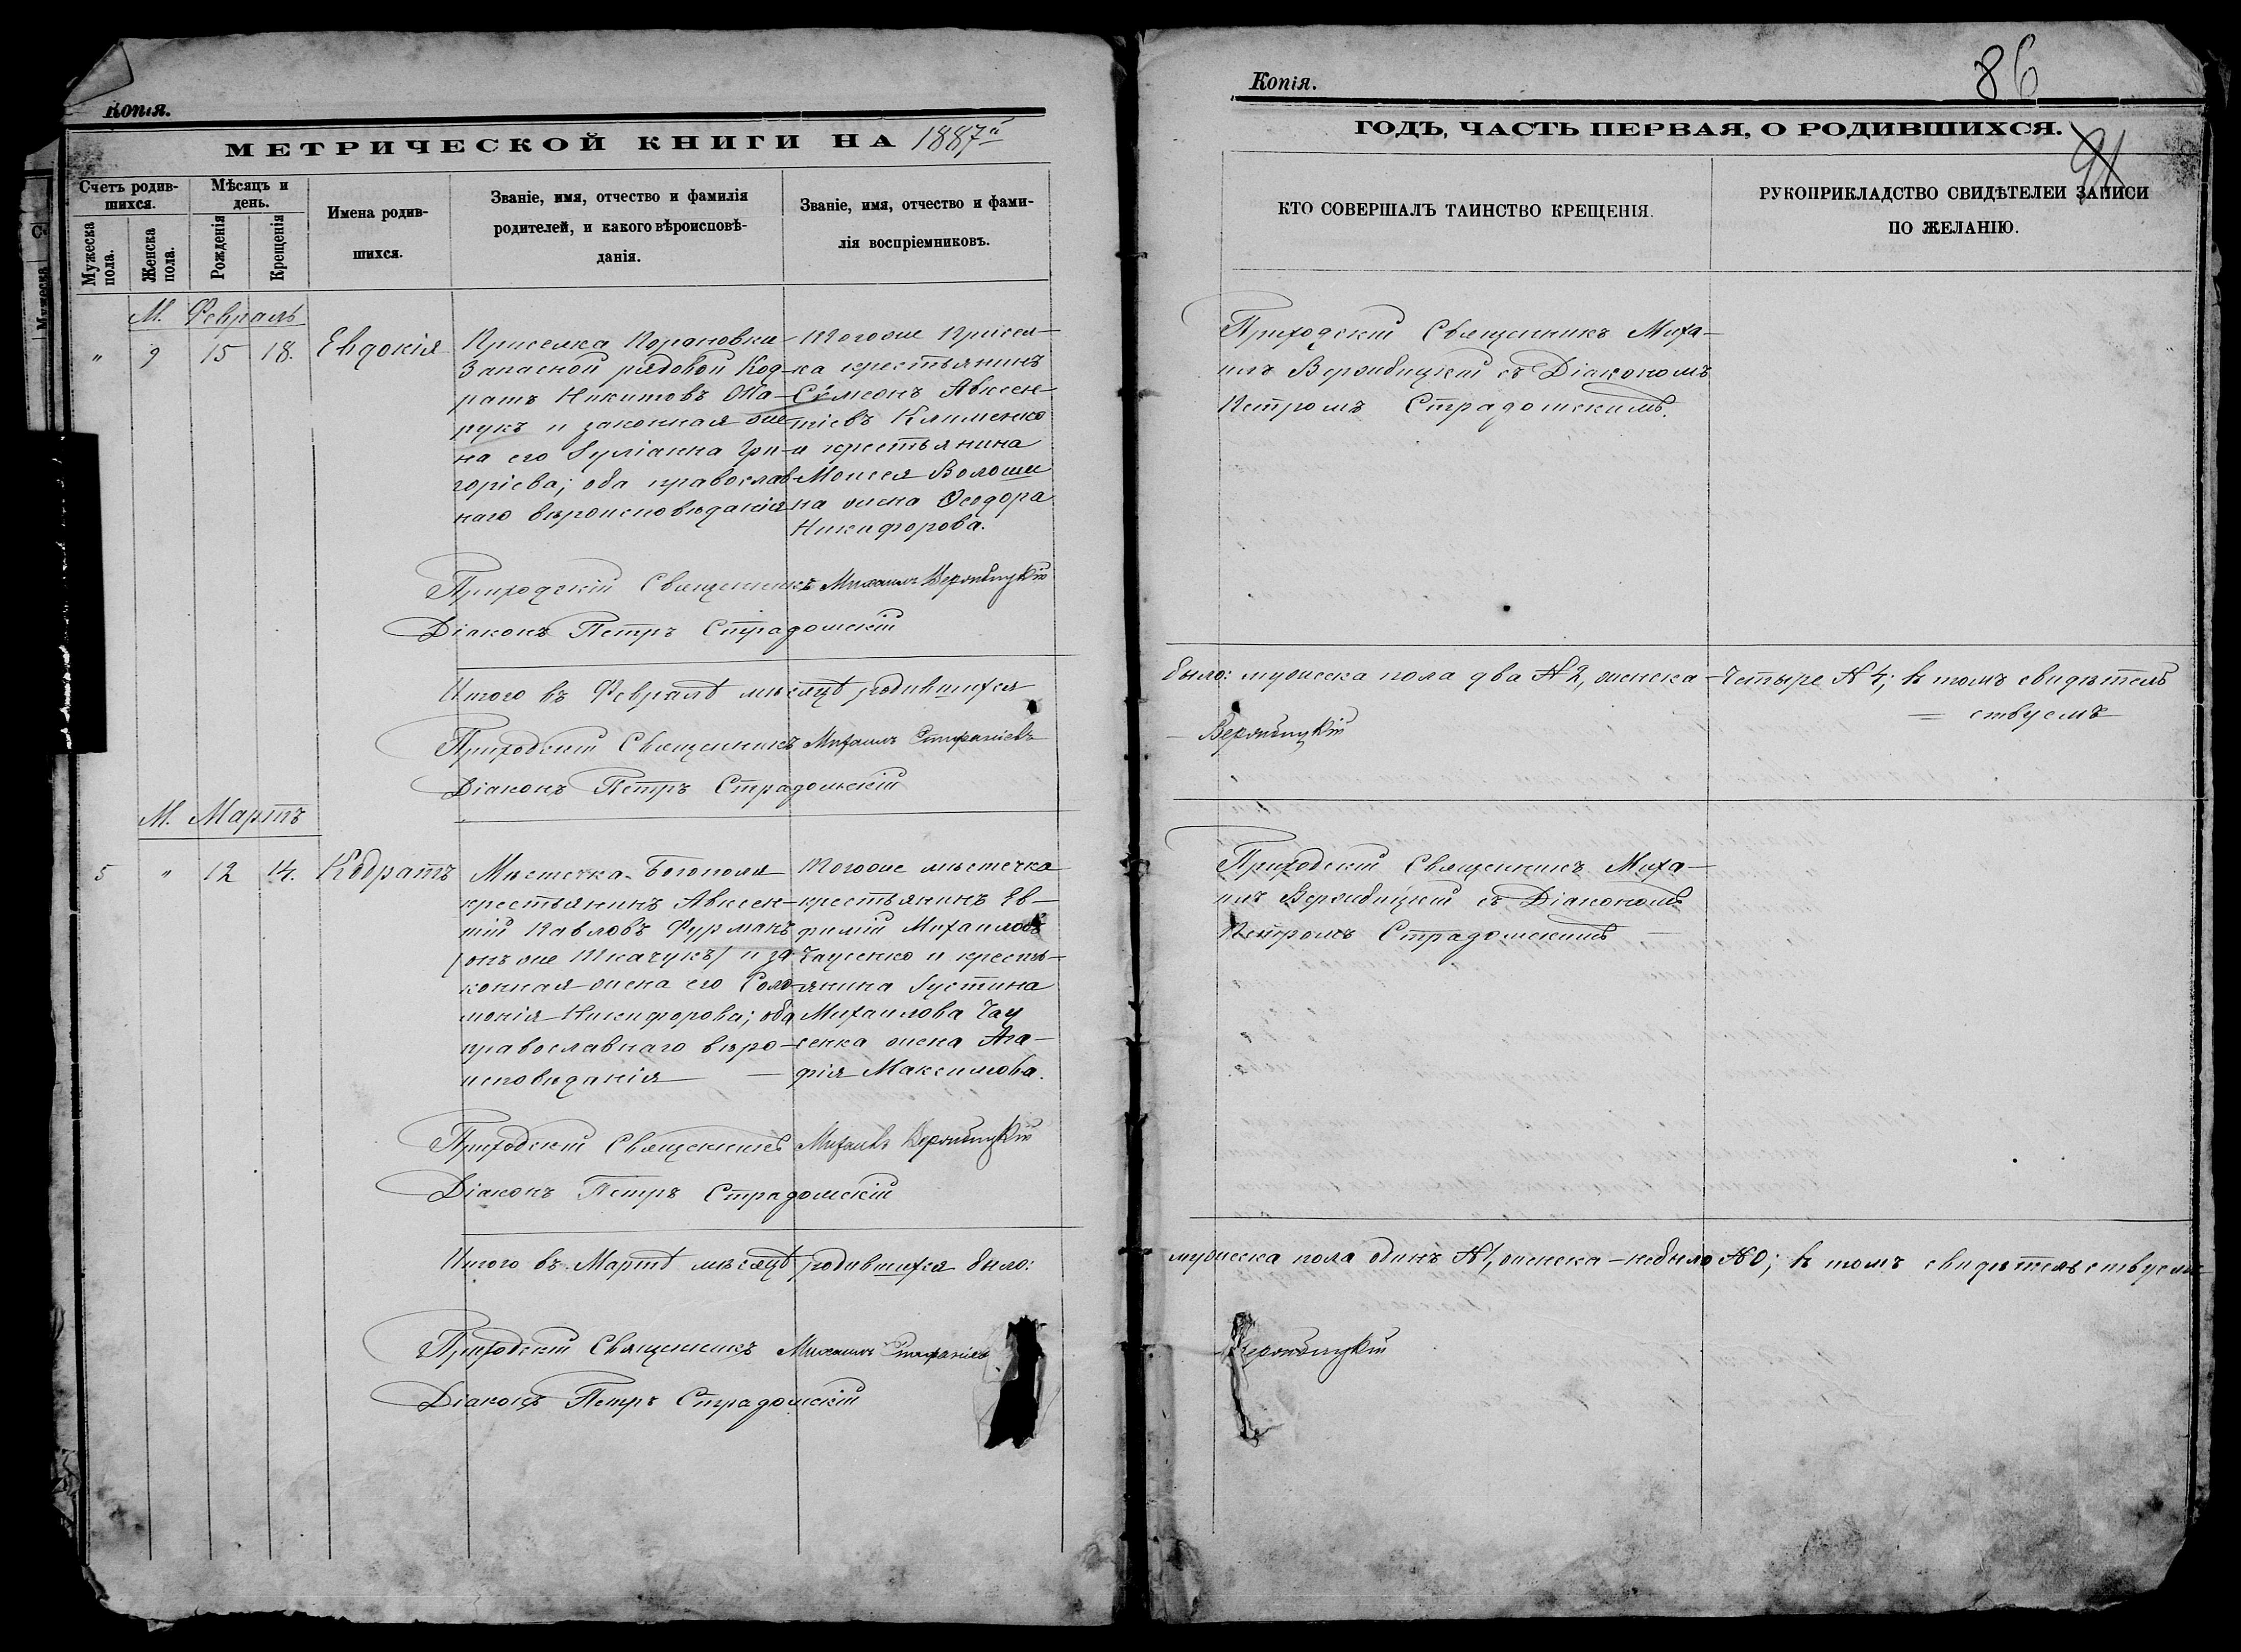 Копія.
МЕТРИЧЕСКОЙ КНИГИ НА 1887й
Счетъ родив-
шихся.
Мѣсяцъ и
день.
Мужеска
пола.
Женска
пола.
Рожденія
Крещенія
Имена родив-
шихся.
Званіе, имя, отчество и фамилія
родителей, и какого вѣроисповѣ-
данія.
Званіе, имя, отчество и фами-
лія воспріемниковъ.
М. Февраль
" 9 15 18. Евдокія
Приселка
Запасной рядовой Код-
ратъ Никитовъ
и законная же-
на его Іуліанна Гри-
горіева; оба православ-
наго вѣроисповѣданія
Тогоже Присел-
ка крестьянинъ
Сѵмеонъ Авксен-
тіевъ Клименко
и крестьянина
Моисея Волоши
на жена Ѳеодора
Никифорова.
Приходскій Священникъ Михаилъ Вержбицкій
Діаконъ Петръ Страдомскій
Итого въ Февралѣ мѣсяцѣ родившихся
Приходскій Священникъ Михаилъ Стефаніевъ
Діаконъ Петръ Страдомскій
М. Мартъ
5 " 12 14. Кодратъ
Мѣстечка Богополя
крестьянинъ Авксен-
тій Павловъ Фурманъ
/онъ же Ткачукъ/ и за-
конная жена его Соло-
монія Никифорова; оба
православнаго вѣро-
исповѣданія
Тогоже мѣстечка
крестьянинъ Ев-
фимій Михаиловъ
Чаусенко и кресть-
янина Іустина
Михаилова Чау
сенка жена Ага-
фія Максимова.
Приходскій Священникъ Михаилъ Вержбицкій
Діаконъ Петръ Страдомскій
Итого въ Мартѣ мѣсяцѣ родившихся было:
Приходскій Священникъ Михаилъ Стефаніевъ
Діаконъ Петръ Страдомскій
Копія.
86
91
ГОДЪ, ЧАСТЬ ПЕРВАЯ, О РОДИВШИХСЯ.
КТО СОВЕРШАЛЪ ТАИНСТВО КРЕЩЕНІЯ.
РУКОПРИКЛАДСТВО СВИДѢТЕЛЕЙ ЗАПИСИ
ПО ЖЕЛАНІЮ.
Приходскій Священникъ Миха-
илъ Вержбицкій съ Діакономъ
Петромъ Страдомскимъ.
было: мужеска пола два № 2, женска – Четыре № 4; въ томъ свидѣтель
= ствуемъ
Вержбицкій
Приходскій Священникъ Миха-
илъ Вержбицкій съ Діакономъ
Петромъ Страдомскимъ
мужеска пола одинъ № 1, женска – небыло № 0; въ томъ свидѣтельствуемъ
Вержбицкій